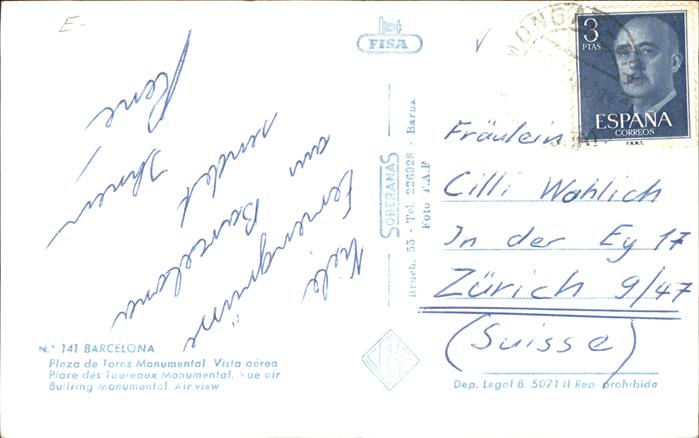 E-
Viele
Feriengrüsse
aus Barcelona
sendet
Ihnen
René
N.° 141 BARCELONA
Plaza de Toros Monumental. Vista aérea
Place des Taureaux Monumental. Vue air
Bullring Monumental. Air view
FISA
SOBERANAS
Bruch, 55 - Tel. 226928 - Barna
Foto F.A.F
3
PTAS
ESPAÑA
CORREOS
F.N.M.T.
Fräulein
Cilli Wahlich
In der Ey 17
Zürich 9/47
(Suisse)
Dep. Legal B. 5071 II Rep. prohibida